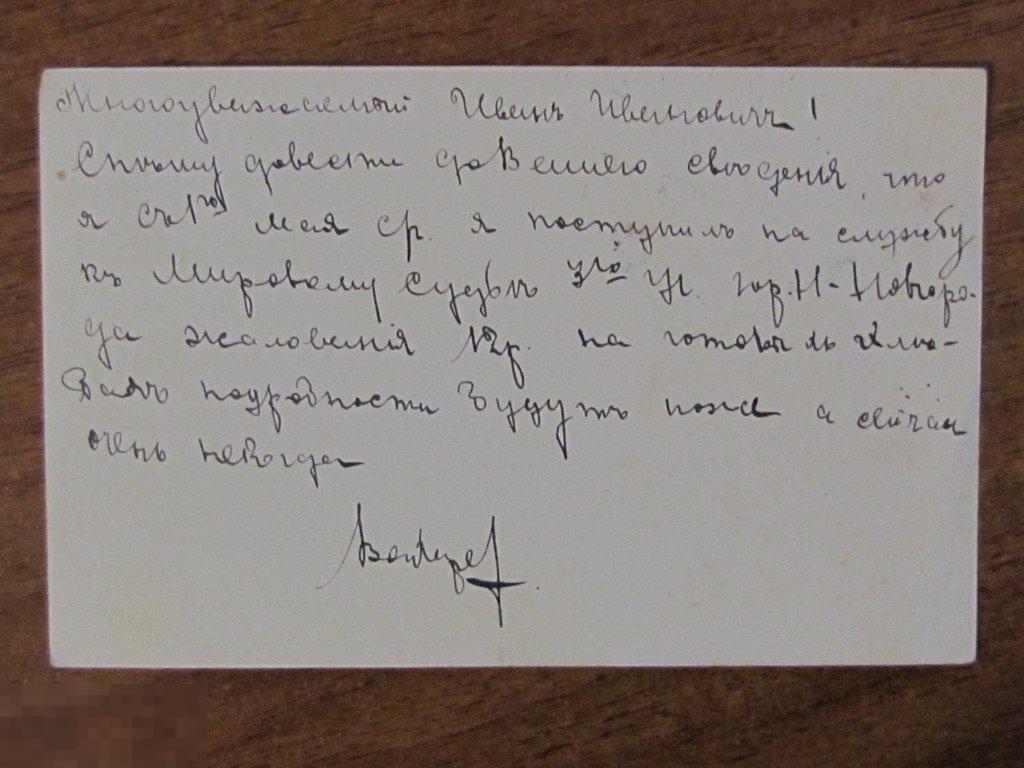 Многоуважаемый Иванъ Ивановичъ!
Спешу довести до Вашего сведенія, что
я съ 1го мая ср. я поступилъ на службу
къ Мировому Судьѣ 3го Уч. гор. Н-Новгоро-
да жалованія 12р. на готовыхъ
подробности будутъ позже а сейчас
очень некогда